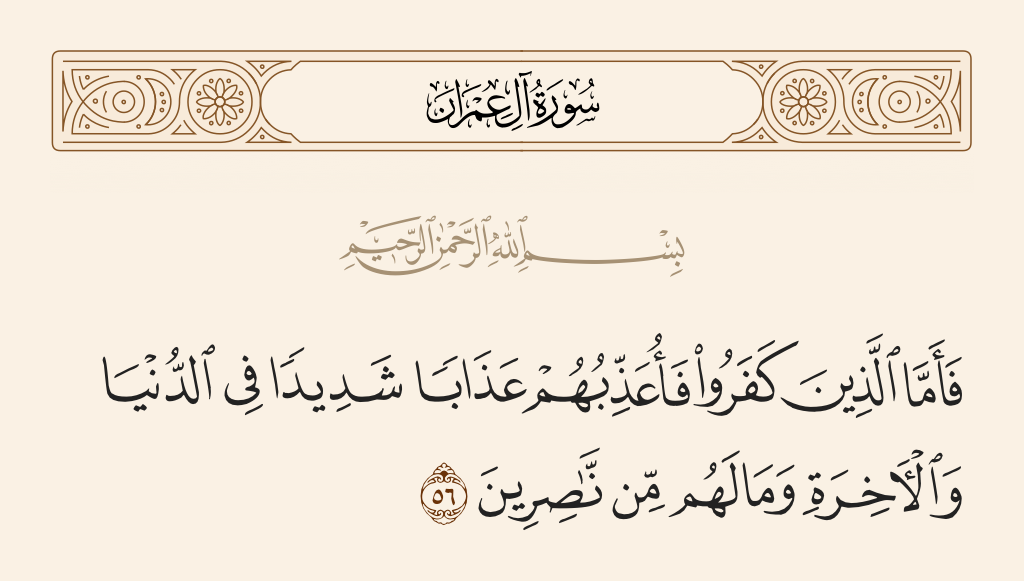 سُورَةُ آلِ عِمْرَان
بِسْمِ ٱللَّهِ ٱلرَّحْمَٰنِ ٱلرَّحِيمِ
فَأَمَّا ٱلَّذِينَ كَفَرُوا۟ فَأُعَذِّبُهُمْ عَذَابًا شَدِيدًا فِى ٱلدُّنْيَا
وَٱلْـَٔاخِرَةِ وَمَا لَهُم مِّن نَّـٰصِرِينَ ٥٦